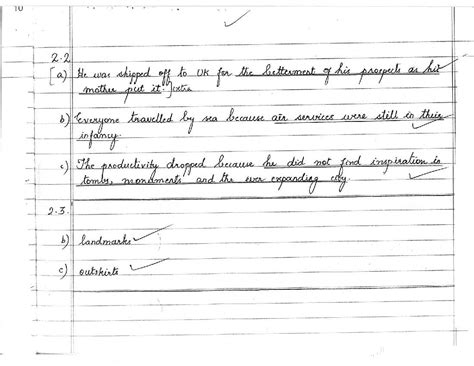 10
2.2
[a) He was shipped off to UK for the betterment of his prospects as his
mother put it.] extra
b) Everyone travelled by sea because air services were still in their
infancy.
c) The productivity dropped because he did not find inspiration in
tombs, monuments and the ever expanding city.
2.3.
b) landmarks
c) outskirts